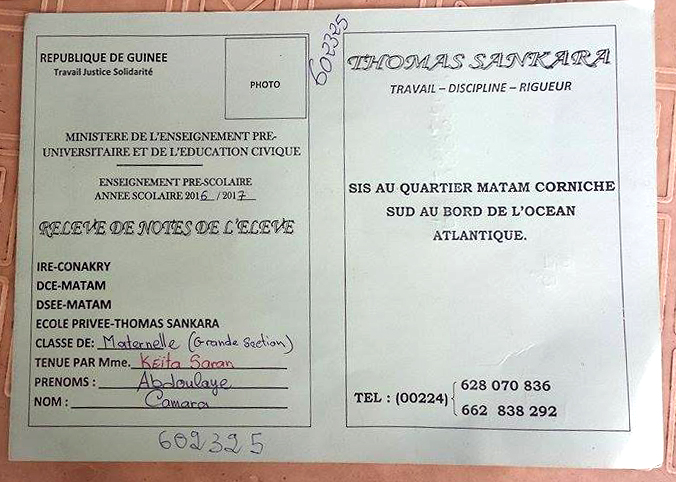 REPUBLIQUE DE GUINEE
Travail Justice Solidarité
PHOTO
MINISTERE DE L'ENSEIGNEMENT PRE-
UNIVERSITAIRE ET DE L'EDUCATION CIVIQUE
ENSEIGNEMENT PRE-SCOLAIRE
ANNEE SCOLAIRE 2016 / 2017
RELEVE DE NOTES DE L'ELEVE
IRE-CONAKRY
DCE-MATAM
DSEE-MATAM
ECOLE PRIVEE-THOMAS SANKARA
CLASSE DE: Maternelle (Grande Section)
TENUE PAR Mme. Keita Saran
PRENOMS : Abdoulaye
NOM : Camara
602325
602325
THOMAS SANKARA
TRAVAIL – DISCIPLINE – RIGUEUR
SIS AU QUARTIER MATAM CORNICHE
SUD AU BORD DE L'OCEAN
ATLANTIQUE.
TEL : (00224)
628 070 836
662 838 292